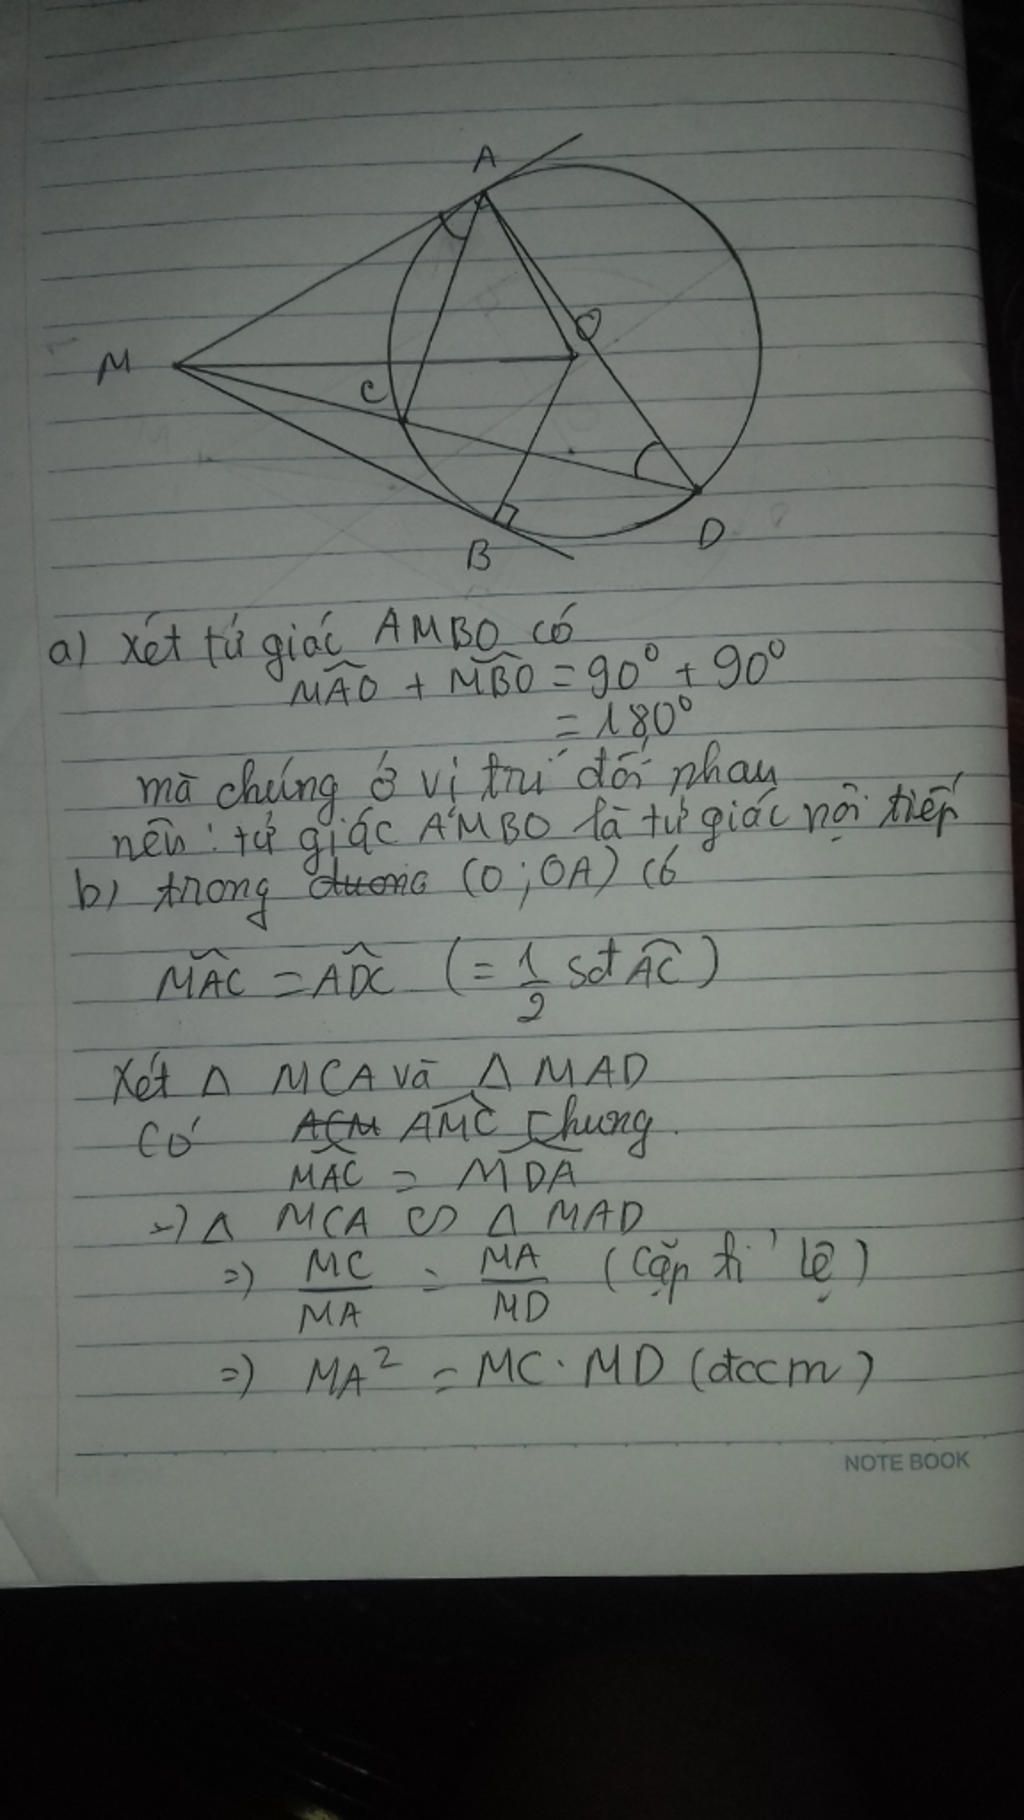 A
M
O
C
B
D
a) Xét tứ giác AMBO có
MAO + MBO = 90° + 90°
= 180°
mà chúng ở vị trí đối nhau
nên: tứ giác AMBO là tứ giác nội tiếp
b) trong (O; OA) có
MAC = ADC (= 1/2 sđ AC)
Xét Δ MCA và Δ MAD
Có AMC chung.
MAC = MDA
=) Δ MCA ∽ Δ MAD
=) MC/MA = MA/MD (Cặp tỉ lệ)
=) MA² = MC . MD (đccm)
NOTE BOOK